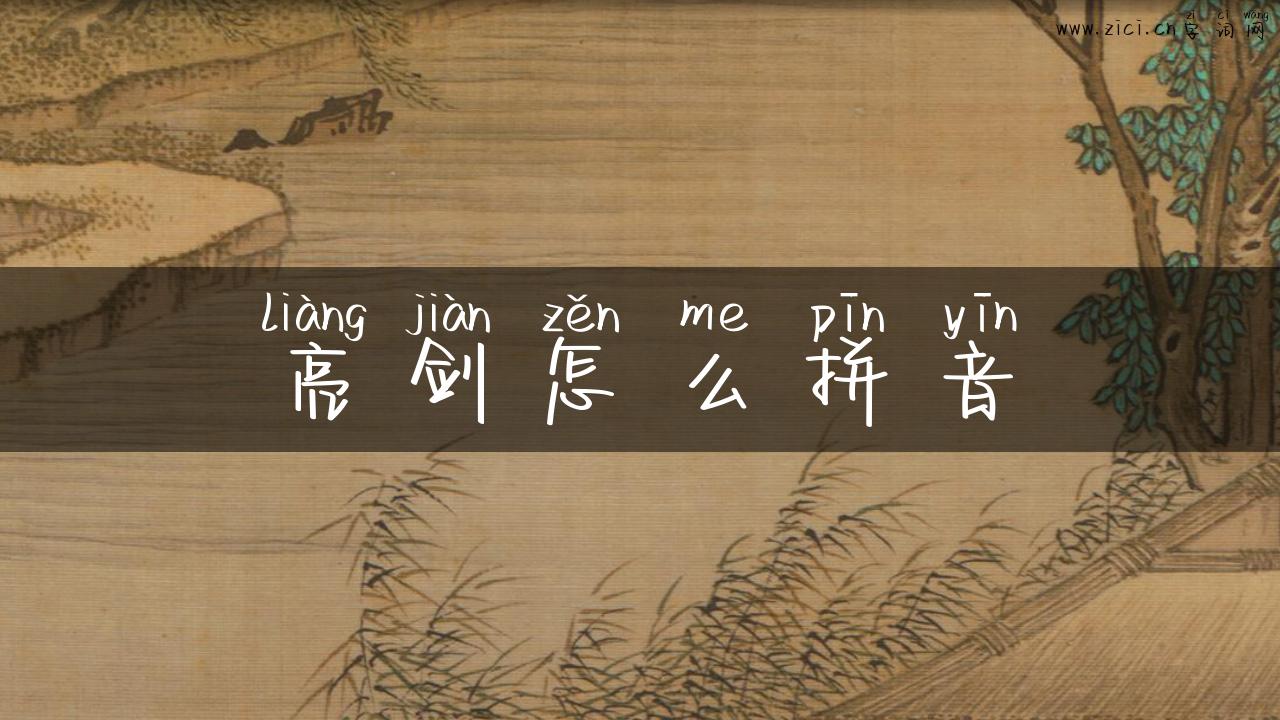 zì cí wǎng
www.zici.cn字词网
liàng jiàn zěn me pīn yīn
亮剑怎么拼音